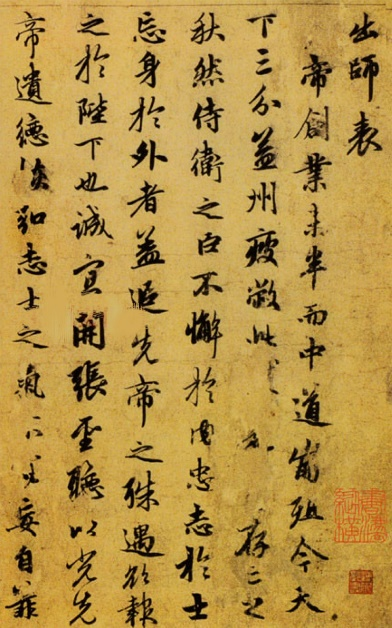 出師表
帝創業未半而中道崩殂今天
下三分益州疲敝此存亡之
秋然侍衛之臣不懈於內忠志於士
忘身於外者蓋追先帝之殊遇欲報
之於陛下也誠宜開張聖聽以光先
帝遺德恢弘志士之氣不宜妄自菲